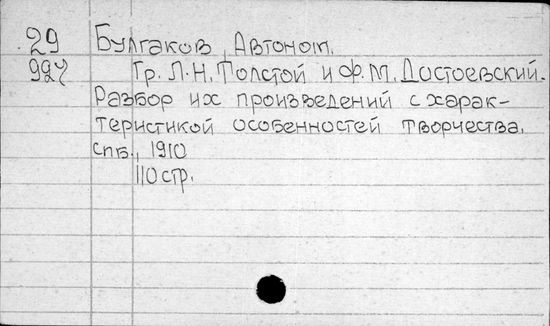 29 Булгаков, Автоном.
924 Гр. Л.Н. Толстой и Ф.М. Достоевский.
Разбор их произведений с харак-
теристикой особенностей творчества.
спб., 1910
110 стр.